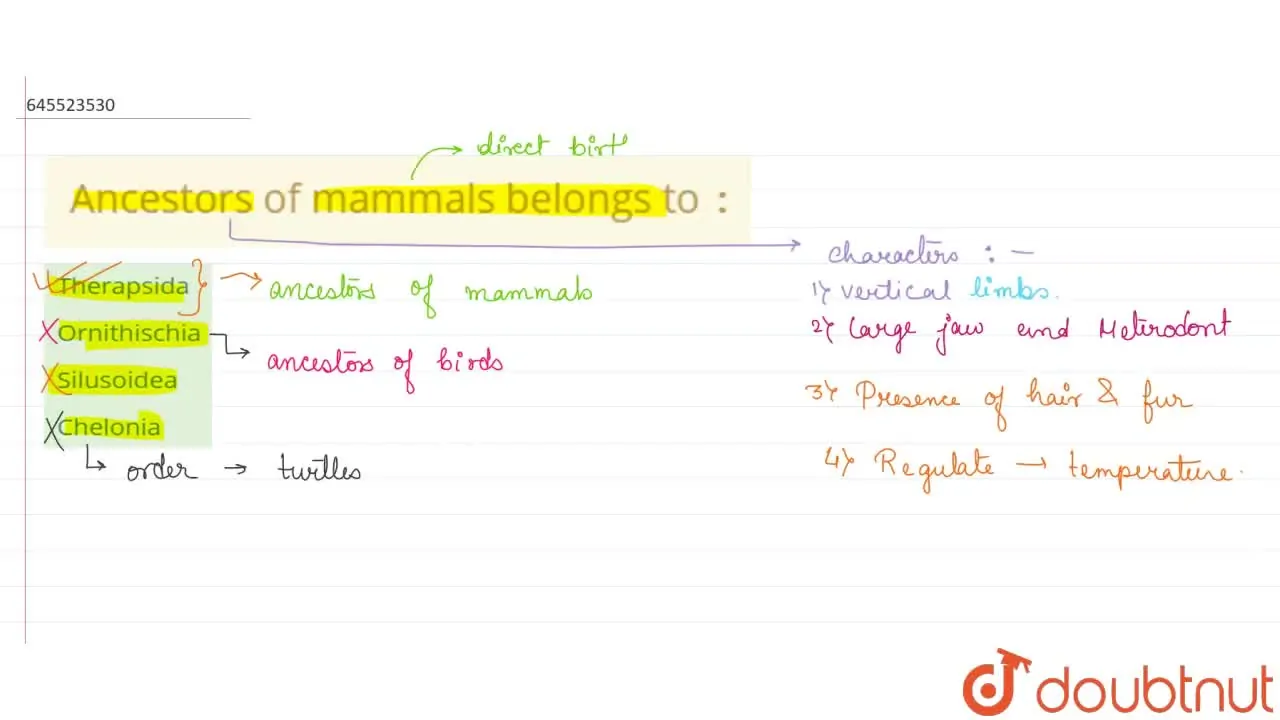 645523530
direct birt
Ancestors of mammals belongs to :
characters : -
Therapsida
ancestors of mammals
1) vertical limbs.
Ornithischia
2) Large jaw and Heterodont
ancestors of birds
Silusoidea
3) Presence of hair & fur
Chelonia
order → turtles
4) Regulate → temperature.
doubtnut